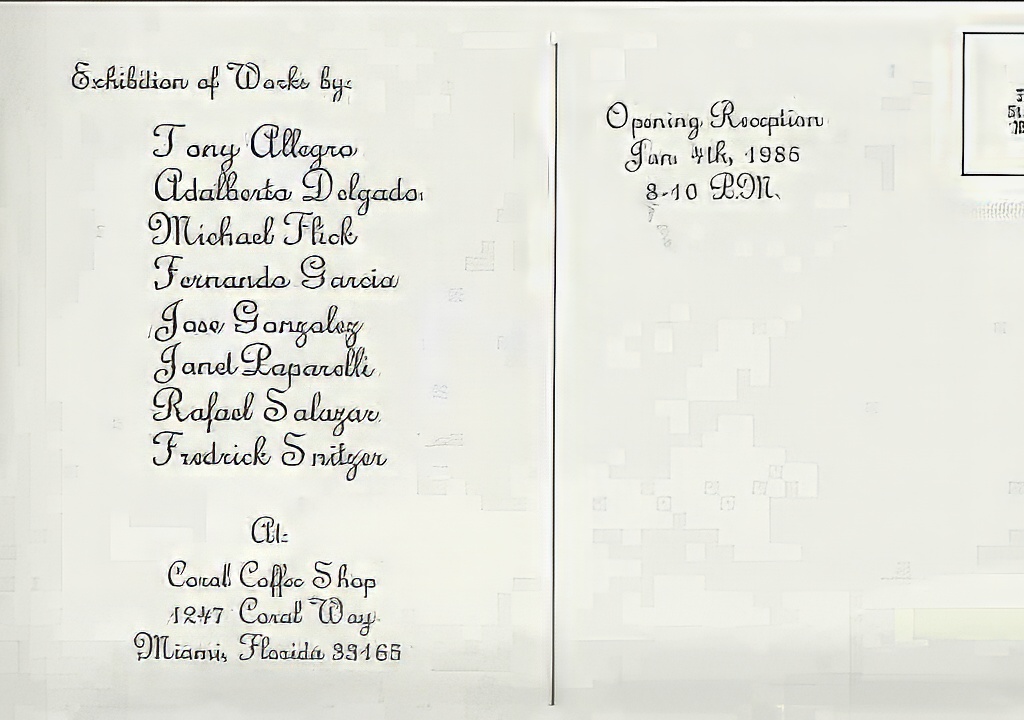 Exhibition of Works by:
Tony Allegro
Adalberto Delgado
Michael Flick
Fernando Garcia
Jose Gonzalez
Janet Paparelli
Rafael Salazar
Fredrick Snitzer
At:
Coral Coffee Shop
1247 Coral Way
Miami, Florida 33165
Opening Reception
Jan 4th, 1986
8-10 P.M.